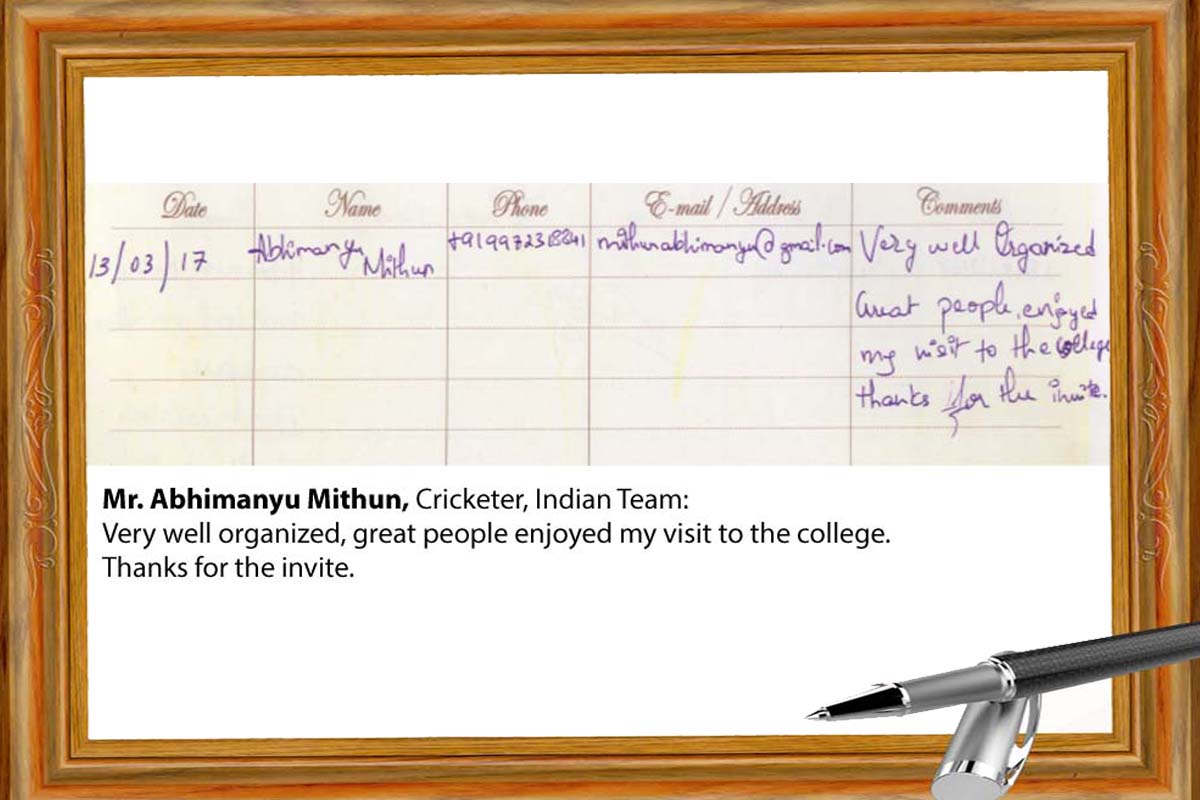 Date Name Phone E-mail / Address Comments
13/03/17 Abhimanyu Mithun mithunabhimanyu@gmail.com Very well Organized
Great people, enjoyed
my visit to the college
thanks for the invite.
Mr. Abhimanyu Mithun, Cricketer, Indian Team:
Very well organized, great people enjoyed my visit to the college.
Thanks for the invite.